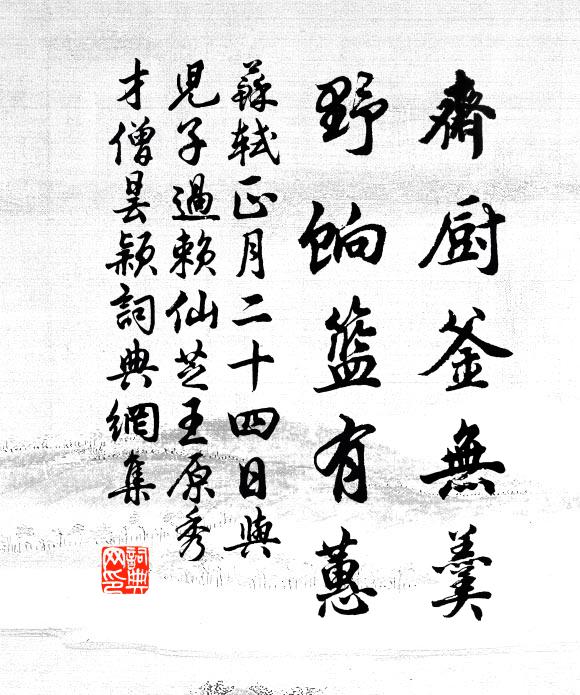 齋厨釜無羹
野餉籃有蕙
蘇軾正月二十四日與
兒子過賴仙芝王原秀
才僧曇穎詞典網集
詞典网印